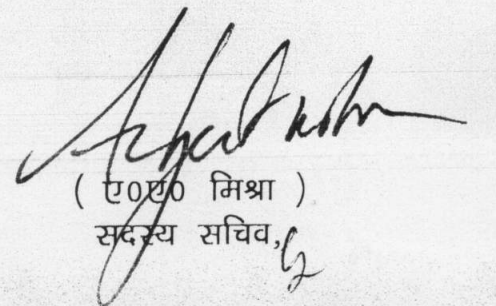 ( ए0ए0 मिश्रा )
सदस्य सचिव,